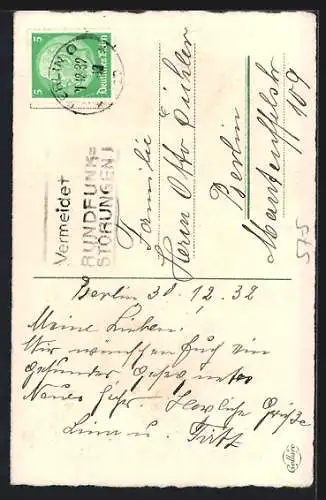 5 Deutsches Reich 5
BERLIN
.12.32
Vermeidet
RUNDFUNK=
STÖRUNGEN!
Familie
Herrn Otto Bühler
Berlin
Manteuffelstr
109
575
Berlin 30.12.32
Meine Lieben!
Wir wünschen Euch ein
gesundes
Neues Jahr. Herzliche Grüße
u. Fritz